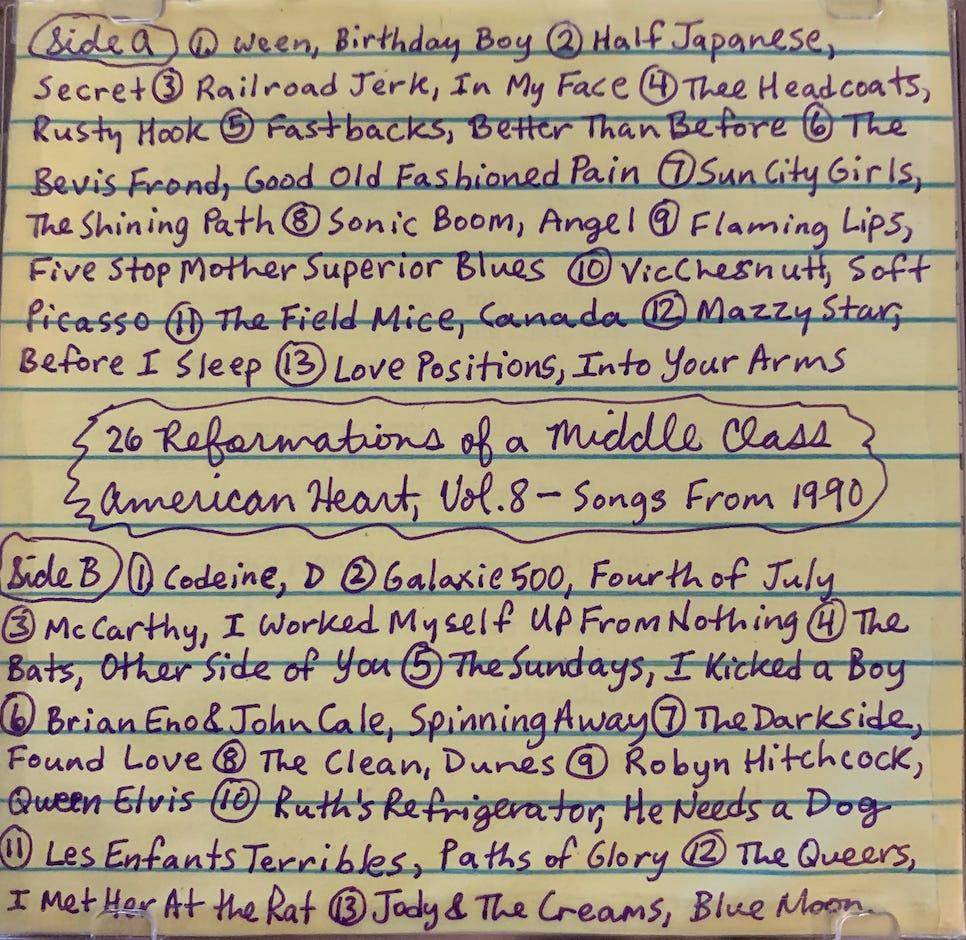 Side A ① Ween, Birthday Boy ② Half Japanese,
Secret ③ Railroad Jerk, In My Face ④ Thee Headcoats,
Rusty Hook ⑤ Fastbacks, Better Than Before ⑥ The
Bevis Frond, Good Old Fashioned Pain ⑦ Sun City Girls,
The Shining Path ⑧ Sonic Boom, Angel ⑨ Flaming Lips,
Five Stop Mother Superior Blues ⑩ Vic Chesnutt, Soft
Picasso ⑪ The Field Mice, Canada ⑫ Mazzy Star,
Before I Sleep ⑬ Love Positions, Into Your Arms
26 Reformations of a Middle Class
American Heart, Vol. 8 - Songs From 1990
Side B ① Codeine, D ② Galaxie 500, Fourth of July
③ McCarthy, I Worked Myself Up From Nothing ④ The
Bats, Other Side of You ⑤ The Sundays, I Kicked a Boy
⑥ Brian Eno & John Cale, Spinning Away ⑦ The Darkside,
Found Love ⑧ The Clean, Dunes ⑨ Robyn Hitchcock,
Queen Elvis ⑩ Ruth's Refrigerator, He Needs a Dog
⑪ Les Enfants Terribles, Paths of Glory ⑫ The Queers,
I Met Her At the Rat ⑬ Jody & The Creams, Blue Moon.